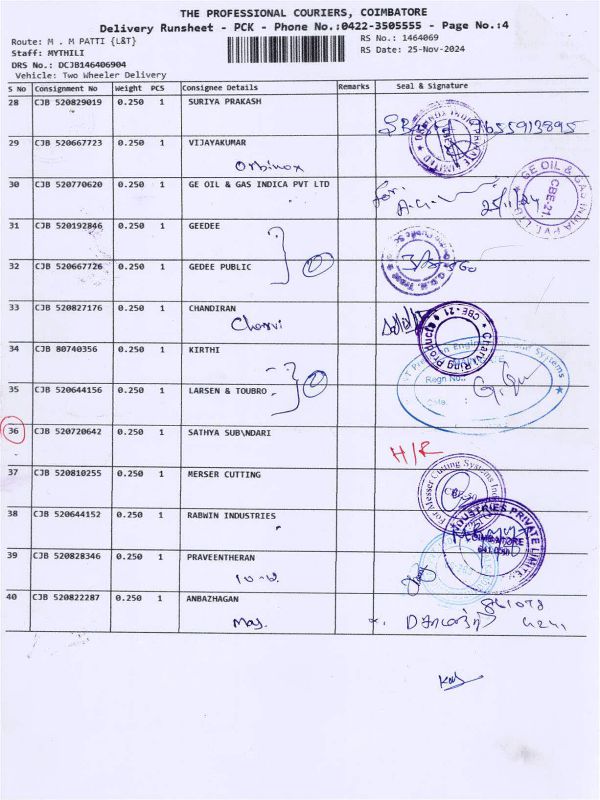 THE PROFESSIONAL COURIERS, COIMBATORE
Delivery Runsheet - PCK - Phone No.:0422-3505555 - Page No.:4
Route: M . M PATTI {L&T}
RS No.: 1464069
Staff: MYTHILI
RS Date: 25-Nov-2024
DRS No.: DCJB146406904
Vehicle: Two Wheeler Delivery
S No Consignment No Weight PCS Consignee Details Remarks Seal & Signature
28 CJB 520829019 0.250 1 SURIYA PRAKASH
9655913895
29 CJB 520667723 0.250 1 VIJAYAKUMAR
Orbinox
30 CJB 520770620 0.250 1 GE OIL & GAS INDICA PVT LTD
for.
25/11/24
GE OIL & GAS INDIA PVT. LTD.
CBE-21.
31 CJB 520192846 0.250 1 GEEDEE
32 CJB 520667726 0.250 1 GEDEE PUBLIC
33 CJB 520827176 0.250 1 CHANDIRAN
Charvi
Charvi Ring Products
CBE - 21
34 CJB 80740356 0.250 1 KIRTHI
Regn No.:
Date :
35 CJB 520644156 0.250 1 LARSEN & TOUBRO
36 CJB 520720642 0.250 1 SATHYA SUB\NDARI
H/R
37 CJB 520810255 0.250 1 MERSER CUTTING
For Messer Cutting Systems
38 CJB 520644152 0.250 1 RABWIN INDUSTRIES
INDUSTRIES PRIVATE LIMITED
COIMBATORE
641 050
39 CJB 520828346 0.250 1 PRAVEENTHERAN
40 CJB 520822287 0.250 1 ANBAZHAGAN